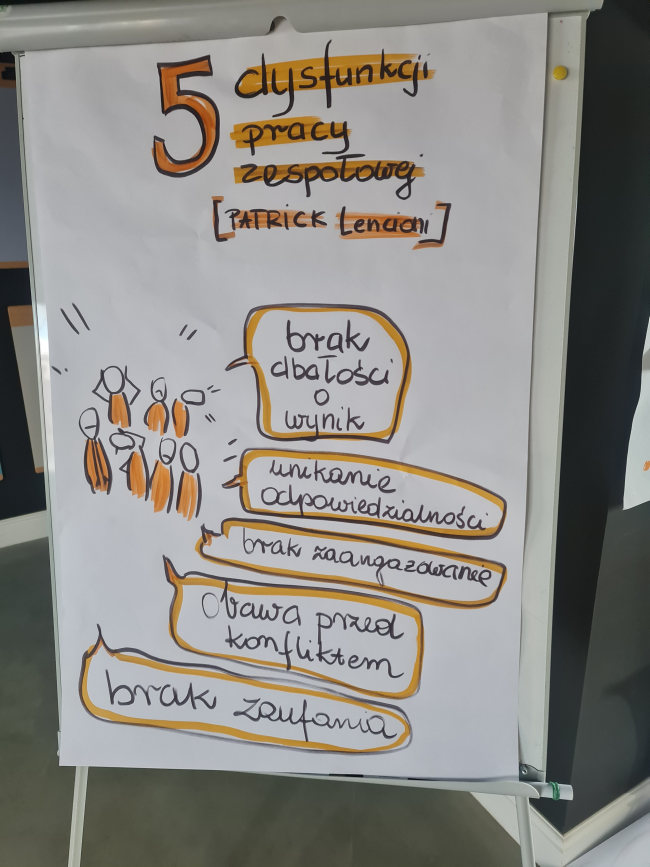 5 dysfunkcji
pracy
zespołowej
[PATRICK Lencioni]
brak
dbałości
o
wynik
unikanie
odpowiedzialności
brak zaangazowanie
Obawa przed
konfliktem
brak zaufania